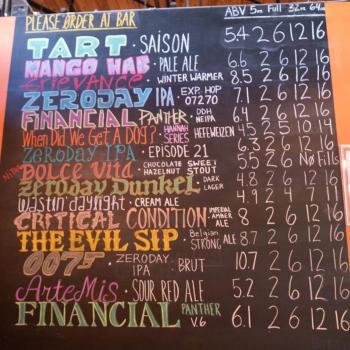 PLEASE ORDER AT BAR ABV 5oz Full 32oz 64oz
TART · SAISON 5.4 2 6 12 16
MANGO HAB · PALE ALE 6.6 2 6 12 16
Grievance · WINTER WARMER 8.5 2 6 12 16
ZERODAY IPA · EXP. HOP 07270 7.1 2 6 12 16
FINANCIAL PANTHER DDH NEIPA 6.4 2 6 12 16
When Did We Get A DOG? HANNAH SERIES HEFEWEIZEN 4.5 2 5 10 14
ZERODAY IPA · EPISODE 21 6.3 2 6 12 16
NITRO DOLCE Vita · CHOCOLATE SWEET HAZELNUT STOUT 5.5 2 6 No Fills
Zeroday Dunkel · DARK LAGER 4.8 2 6 12 16
Wastin' daylight · CREAM ALE 4.9 2 6 12 16
CRITICAL CONDITION · IMPERIAL AMBER ALE 8 2 6 12 16
THE EVIL SIP · Belgian STRONG ALE 8.7 2 6 12 16
007 · ZERODAY IPA · BRUT 10.7 2 6 12 16
ArteMis · SOUR RED ALE 5.2 2 6 12 16
FINANCIAL PANTHER V.6 6.1 2 6 12 16